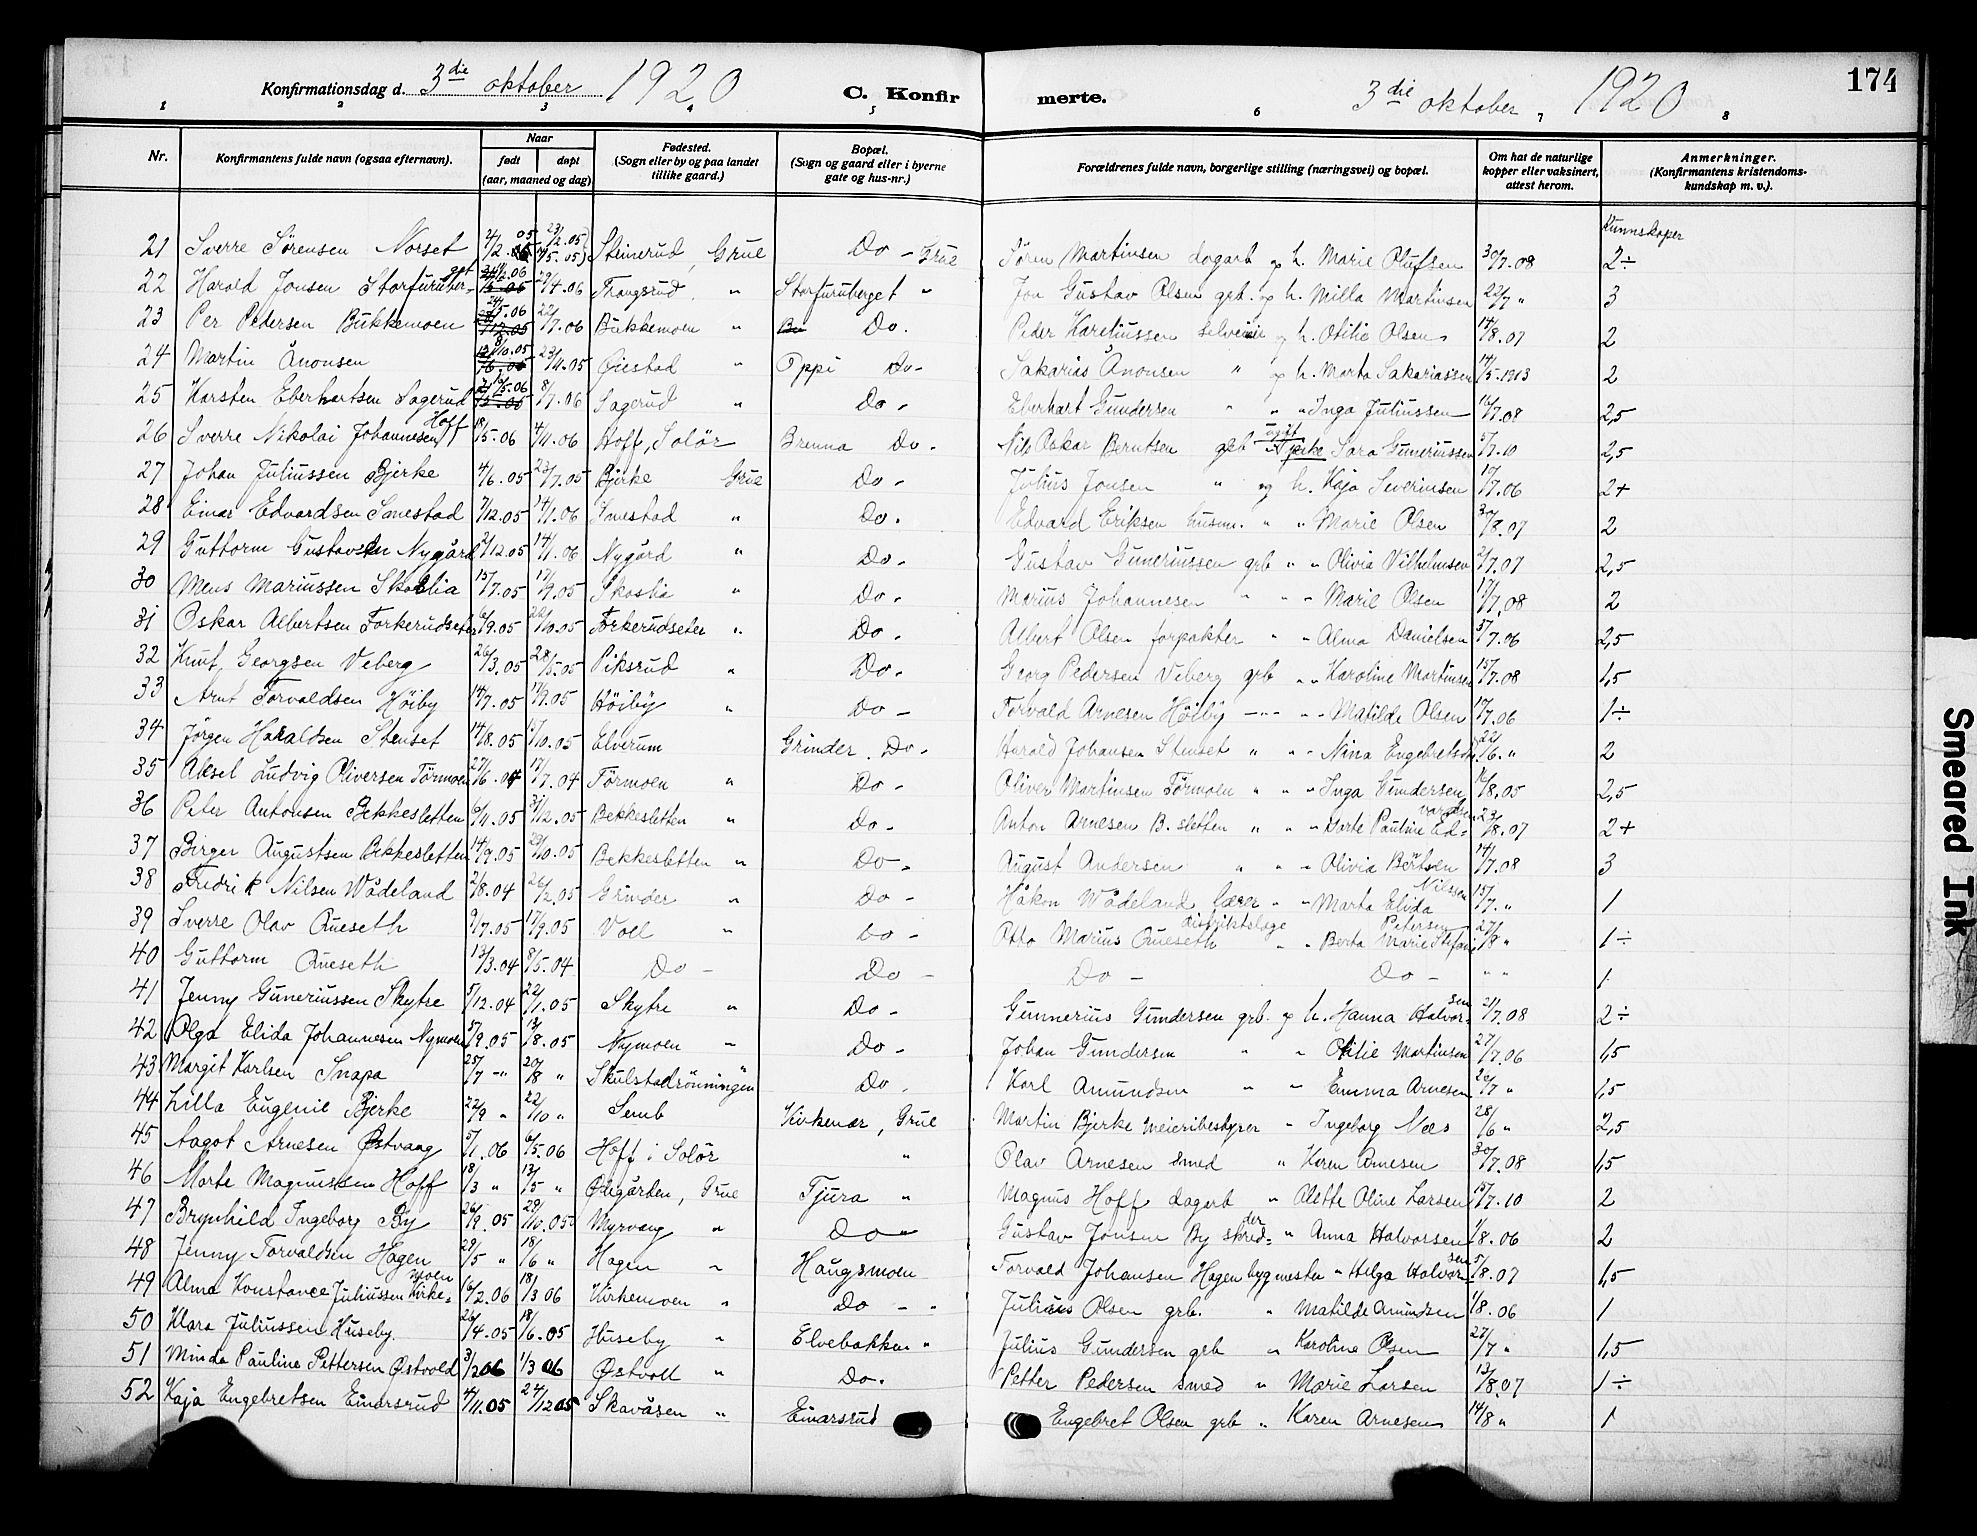 Konfirmationsdag d. 3die oktober 1920 C. Konfirmerte. 3die oktober 1920 174
1 2 3 4 5 6 7 8
Nr. Konfirmantens fulde navn (ogsaa efternavn). Naar født døpt (aar, maaned og dag) Fødested. (Sogn eller by og paa landet tillike gaard.) Bopæl. (Sogn og gaard eller i byerne gate og hus-nr.) Forældrenes fulde navn, borgerlige stilling (næringsvei) og bopæl. Om hat de naturlige kopper eller vaksinert, attest herom. Anmerkninger. (Konfirmantens kristendomskundskap m. v.).
Kunnskaper
21 Sverre Sørensen Norset Steinerud, Grue Do - Grue Søren Martinsen dagarb og h. Marie Olufsen 30/7.08 2÷
22 Harald Jonsen Storfuruberget 29/4.06 " Storfuruberget " Jon Gustav Olsen grb. og h. Milla Martinsen 22/7 " 3
23 Per Pedersen Bukkemoen 24/5.06 22/7.06 Bukkemoen " Do. Peder selveier og h. Otilie Olsen 14/8.07 2
24 Martin Ånonsen 8/10.05 23/11.05 Øiestad " Oppi Do - Sakarias Ånonsen " og h. Marta Sakariassen 14/5.1913 2
25 Karsten Eberhartsen Sagerud 8/7.06 Sagerud " Do - Eberhart Gundersen " " " Inga Juliussen 16/7.08 2,5
26 Sverre Nikolai Johannesen Hoff 18/5.06 4/11.06 Hoff, Solør Brenna Do - Nils Oskar Berntsen grb ugift pike Sara Gunerinssen 5/7.10 2,5
27 Johan Juliussen Bjerke 4/6.05 23/7.05 Bjerke Grue Do - Julius Jonsen " og h. Kaja Severinsen 10/7.06 2+
28 Einar Edvardsen Sanestad 7/12.05 14/1.06 Sanestad " Do - Edvard Eriksen husm. " " Marie Olsen 30/8.07 2
29 Guttorm Gustavsen Nygård 2/12.05 14/1.06 Nygård " Do - Gustav Guneriussen grb " " Olivia Vilhelmsen 2/7.07 2,5
30 Mens Mariussen Skaslia 15/7.05 17/9.05 Skaslia " Do - Marius Johannesen " " " Marie Olsen 17/7.08 2
31 Oskar Albertsen Torkerudseter 6/9.05 22/10.05 Torkerudseter " Do - Albert Olsen forpakter " " Alma Danielsen 5/7.06 2,5
32 Knut Georgsen Veberg 26/3.05 28/5.05 Piksrud " Do - Georg Pedersen Veberg grb " " Karoline Martinsen 15/7.08 1,5
33 Arnt Torvaldsen Høiby 14/7.05 17/9.05 Høiby " Do - Torvald Arnesen Høiby -"- " " Matilde Olsen 17/7.06 1÷
34 Jørgen Haraldsen Stenset 14/8.05 15/10.05 Elverum Grinder. Do - Harald Johansen Stenset " " " Nina Engebretsdtr 22/6 " 2
35 Aksel Ludvig Oliversen Törmoen 27/6.04 17/7.04 Törmoen " Do - Oliver Martinsen Törmoen " " " Inga Gundersen 16/8.05 2,5
36 Peter Antonsen Bekkesletten 6/11.05 31/12.05 Bekkesletten " Do - Anton Arnesen B. sletten " " " Dorte Pauline Edvardsen 23/8.07 2+
37 Birger Augustsen Bekkesletten 14/9.05 29/10.05 Bekkesletten " Do - August Andersen " " " Olivia Børtsen 14/7.08 3
38 Fredrik Nilsen Wådeland 2/8.04 26/2.05 Grinder " Do - Håkon Wådeland lærer " " Marta Elida Nilssen 15/7 " 1
39 Sverre Olav Rueseth 9/7.05 17/9.05 Voll " Do - Otto Marius Rueseth distriktslæge " " Berta Marie Stefani Petersen 27/8 " 1÷
40 Guttorm Rueseth 13/3.04 8/5.04 Do - Do - Do - Do - " " 1
41 Jenny Guneriussen Skytre 5/12.04 22/1.05 Skytre " Do - Gunnerius Gundersen grb. og h. Hanna Halvorsen 21/7.08 2÷
42 Olga Elida Johannesen Nymoen 5/9.05 13/8.05 Nymoen " Do - Johan Gundersen " " Otilie Martinsen 27/7.06 1,5
43 Margit Karlsen Snapa 25/7 -"- 20/8 " Skulstadrønningen " Do - Karl Amundsen " " Emma Arnesen 26/7 " 1,5
44 Lilla Eugenie Bjerke 22/9 " 22/10 " Semb Kirkenær, Grue Martin Bjerke meieribestyrer " Ingeborg Næs 28/6 " 2,5
45 Aagot Arnesen Østvaag 5/1.06 6/5.06 Hoff i Solör " Olav Arnesen smed " Karen Arnesen 30/7.08 1,5
46 Marte Magnussen Hoff 18/3 " 13/5 " Øiegården, Grue Tjura " Magnus Hoff dagarb " Alette Oline Larsen 15/7.10 2
47 Brynhild Ingeborg By 26/9.05 29/10.05 Myrvang " Do " Gustav Jonsen By skredder " Anna Halvorsen 1/8.06 2
48 Jenny Torvaldsen Hagen 29/5 " 18/6 " Hagen " Haugsmoen Torvald Johansen Hagen bygmester " Helga Halvorsen 5/8.07 1,5
49 Alma Konstance Juliussen Kirkemoen 16/2.06 18/3 06 Kirkemoen " Do - " Julius Olsen grb. " Matilde Amundsen 1/8.06 1
50 Klara Juliussen Huseby. 26/4.05 18/6.05 Huseby " Elvebakken " Julius Gundersen grb " Karoline Olsen 27/7 " 1,5
51 Minda Pauline Pettersen Østvold 3/2 06 1/3 06 Østvoll " Do. Petter Pedersen smed " Marie Larsen 13/8.07 1÷
52 Kaja Engebretsen Einarsrud 4/11.05 24/12 05 Skavåsen " Einarsrud Engebret Olsen grb " Karen Arnesen 14/8 " 1
Smeared Ink